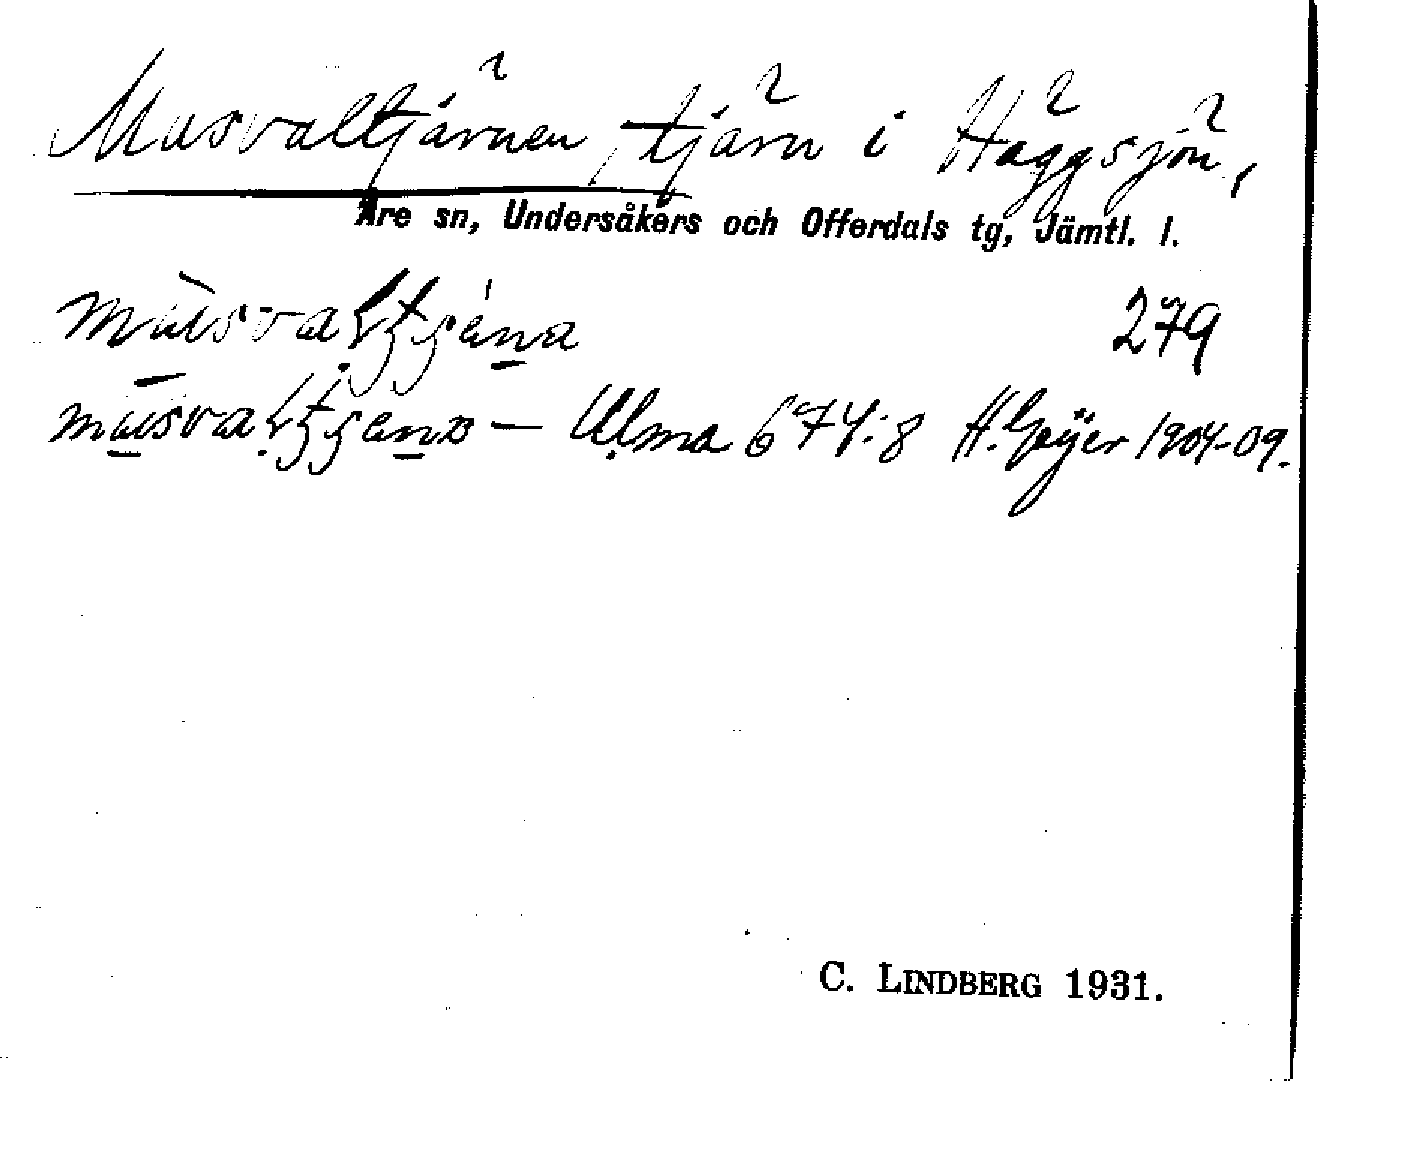 Musvaltjärnen, tjärn i Häggsjön,
Åre sn, Undersåkers och Offerdals tg, Jämtl. l.
279
— Ulma 674:8 H. Geijer 1904-09.
C. LINDBERG 1931.